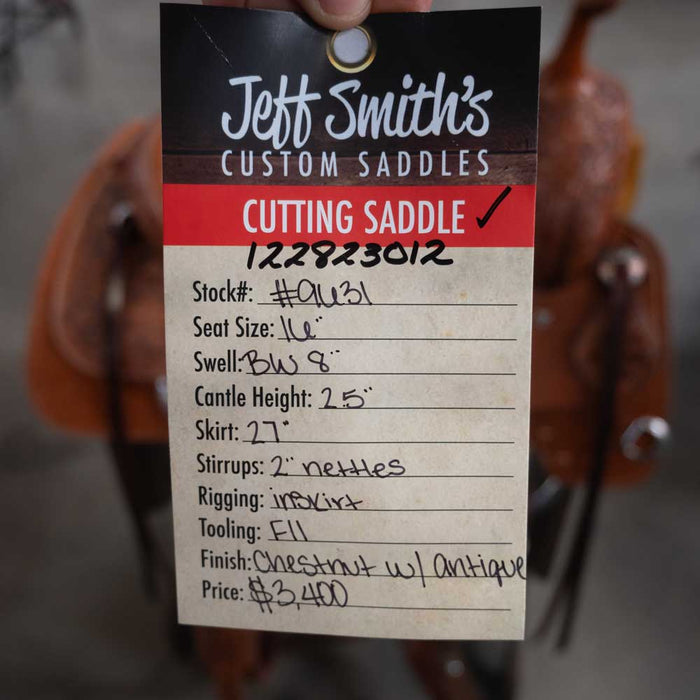 Jeff Smith's
CUSTOM SADDLES
CUTTING SADDLE ✓
122823012
Stock#: #9631
Seat Size: 16"
Swell: BW 8"
Cantle Height: 2.5"
Skirt: 27"
Stirrups: 2" nettles
Rigging: inskirt
Tooling: F11
Finish: Chestnut w/ antique
Price: $3,400